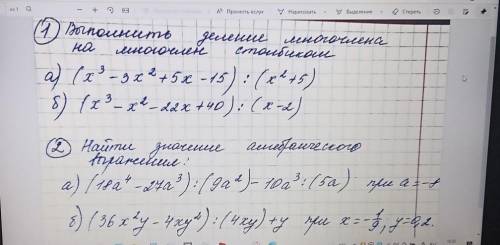 из 1
Прочесть вслух
Нарисовать
Выделение
Стереть
1) Выполнить деление многочлена
на многочлен столбиком
а) (x³ - 3x² + 5x - 15) : (x² + 5)
б) (x³ - x² - 22x + 40) : (x - 2)
2) Найти значение алгебраического
выражения:
а) (18a⁴ - 27a³) : (9a²) - 10a³ : (5a) при a = -8
б) (36x²y - 4xy²) : (4xy) + y при x = -1/9, y = 0,2.